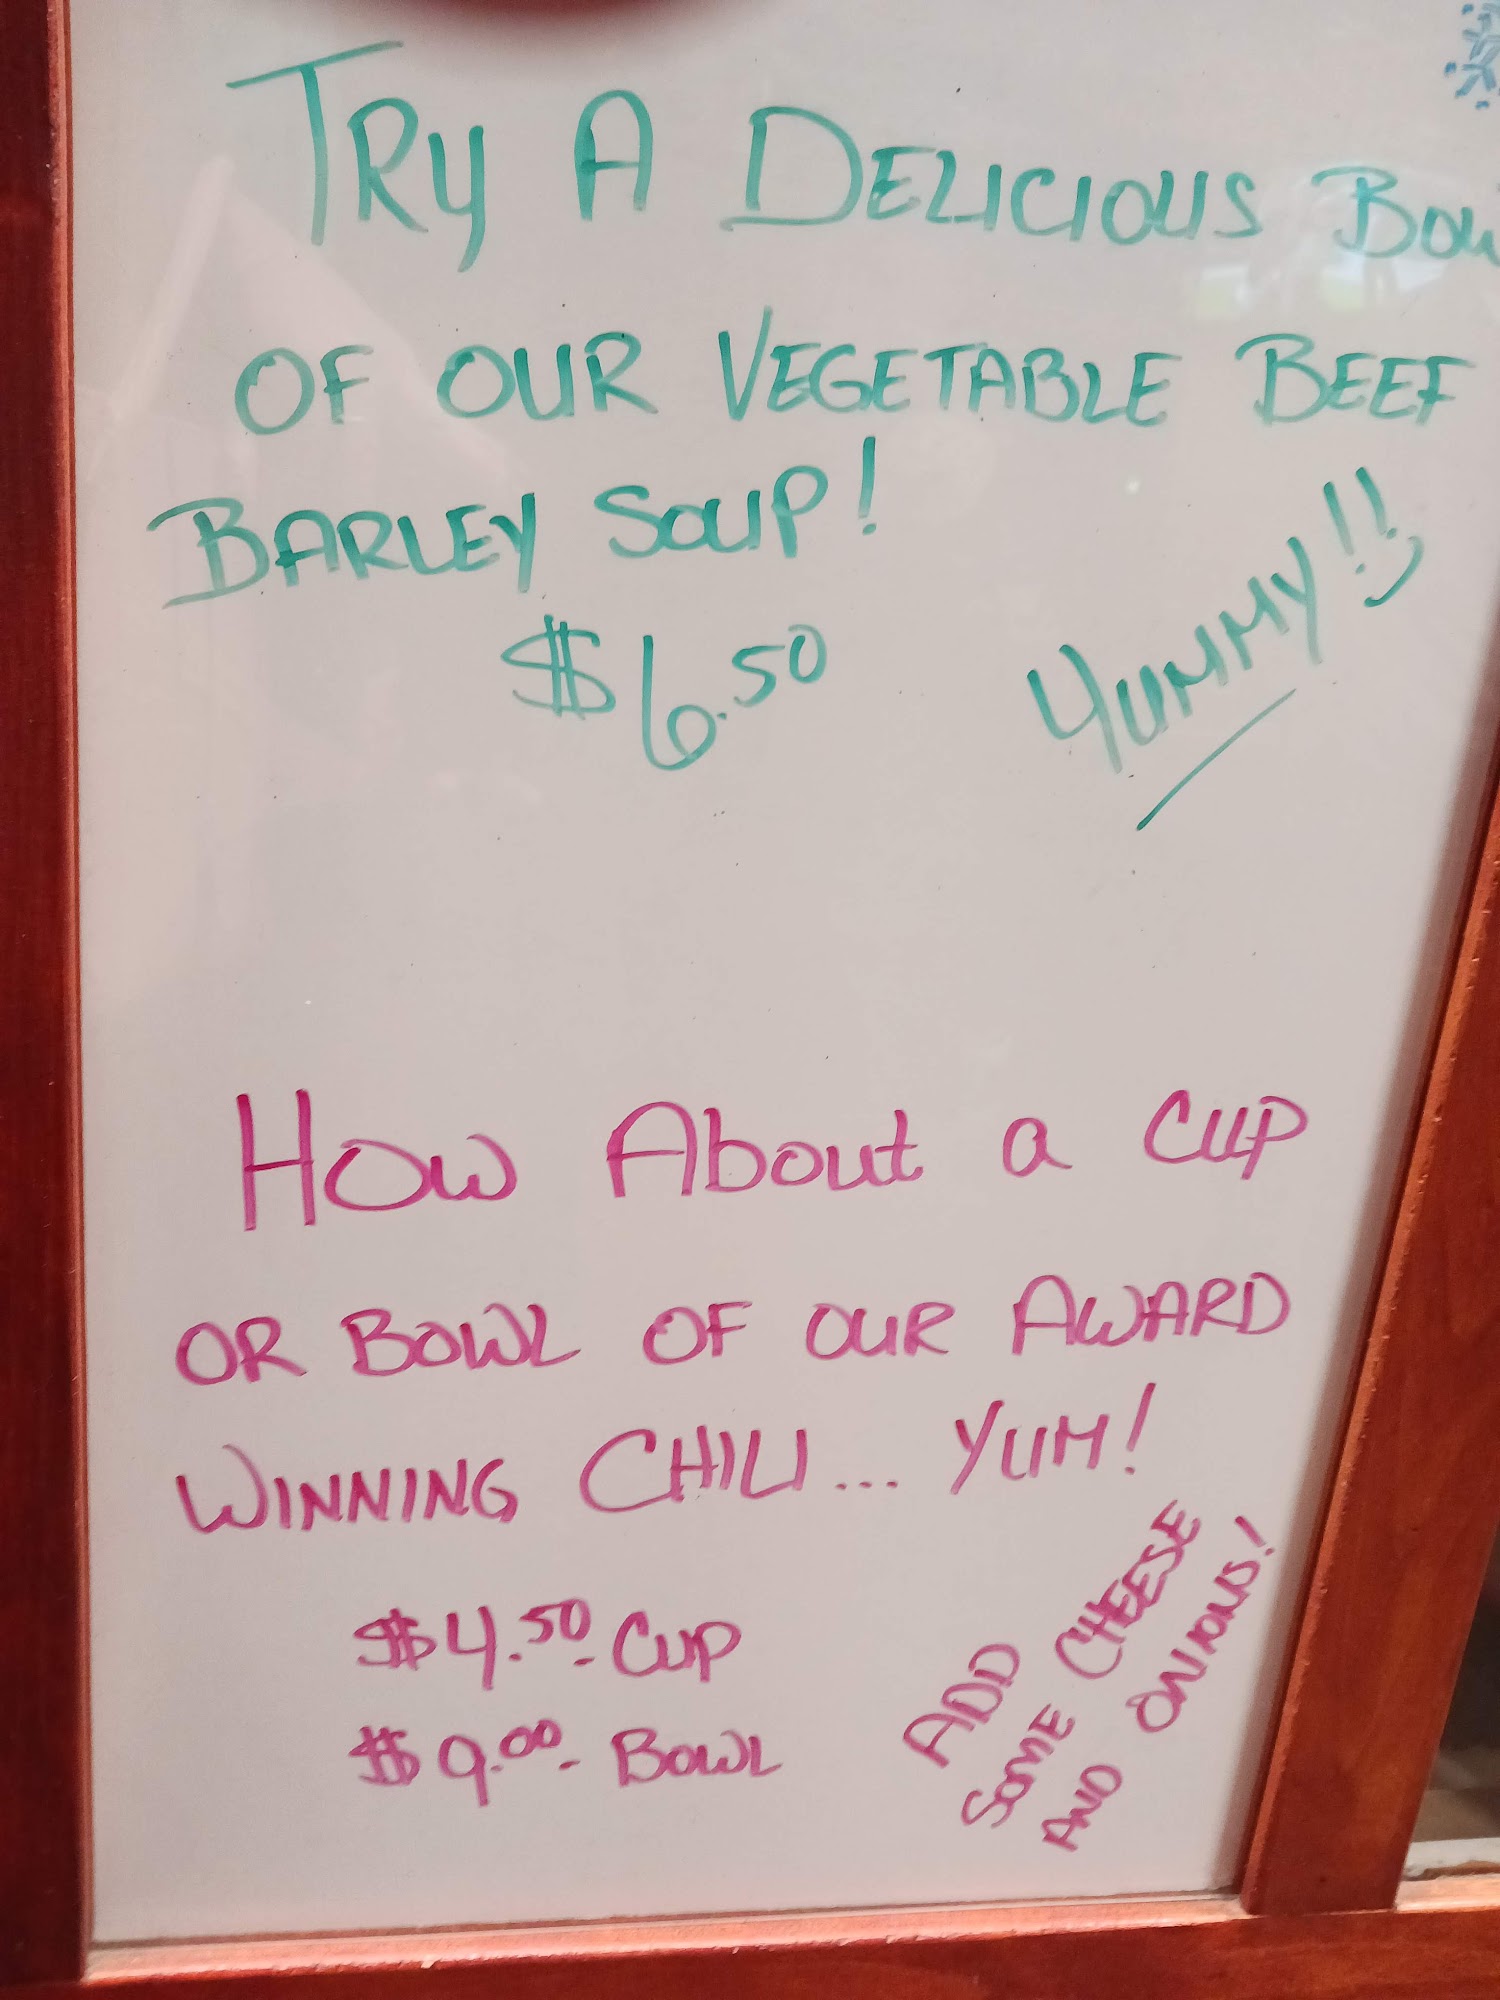 TRY A DELICIOUS
OF OUR VEGETABLE BEEF
BARLEY SOUP!
$6.50
YUMMY!!
HOW ABOUT a CUP
OR BOWL OF OUR AWARD
WINNING CHILI... YUM!
$4.50 - CUP
$9.00 - BOWL
ADD
SOME CHEESE
AND ONIONS!